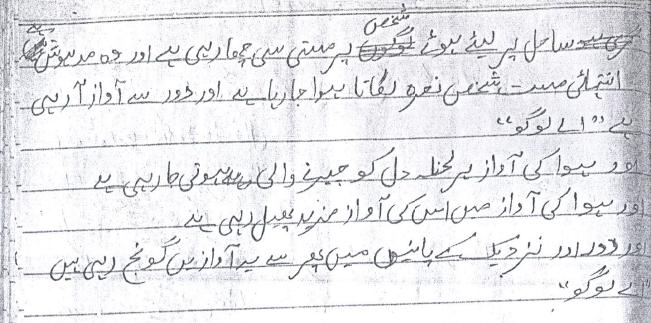 ساحل پر لیٹے ہوئے شخص پر مستی سی چھا رہی ہے اور وہ مدہوش ہے
انتہائی مست شخص نعرہ لگاتا ہوا جا رہا ہے اور دور سے آواز آ رہی
ہے "اے لوگو"
اور ہوا کی آواز ہر لحظہ دل کو چیرنے والی ہوتی جا رہی ہے
اور ہوا کی آواز میں اس کی آواز مزید پھیل رہی ہے
اور دور اور نزدیک کے پانیوں میں پھر سے یہ آوازیں گونج رہی ہیں
"اے لوگو"